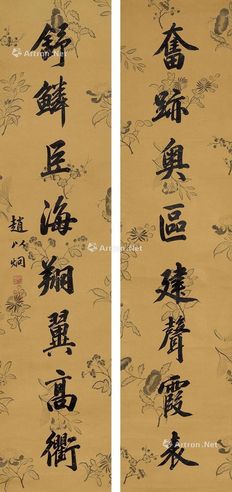 奮跡奧區建聲霞衣
舒鱗巨海翔翼高衢
趙以炯
Artron.Net
Artron.Net
Artron.Net
Artron.Net